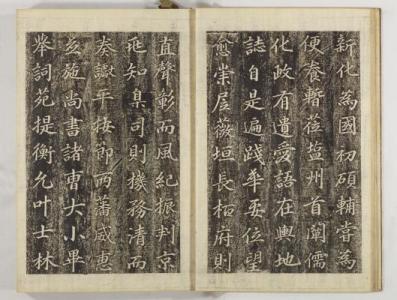 新化為國初碩輔嘗為
便養暫莅盐州首闡儒
化政有遺愛語在輿地
誌自是遍踐華要位望
愈崇居薇垣長栢府則
直聲彰而風紀振判京
兆知臬司則機務清而
奏讞平按節兩藩威惠
並施尚書諸曹大小畢
擧詞苑提衡允叶士林